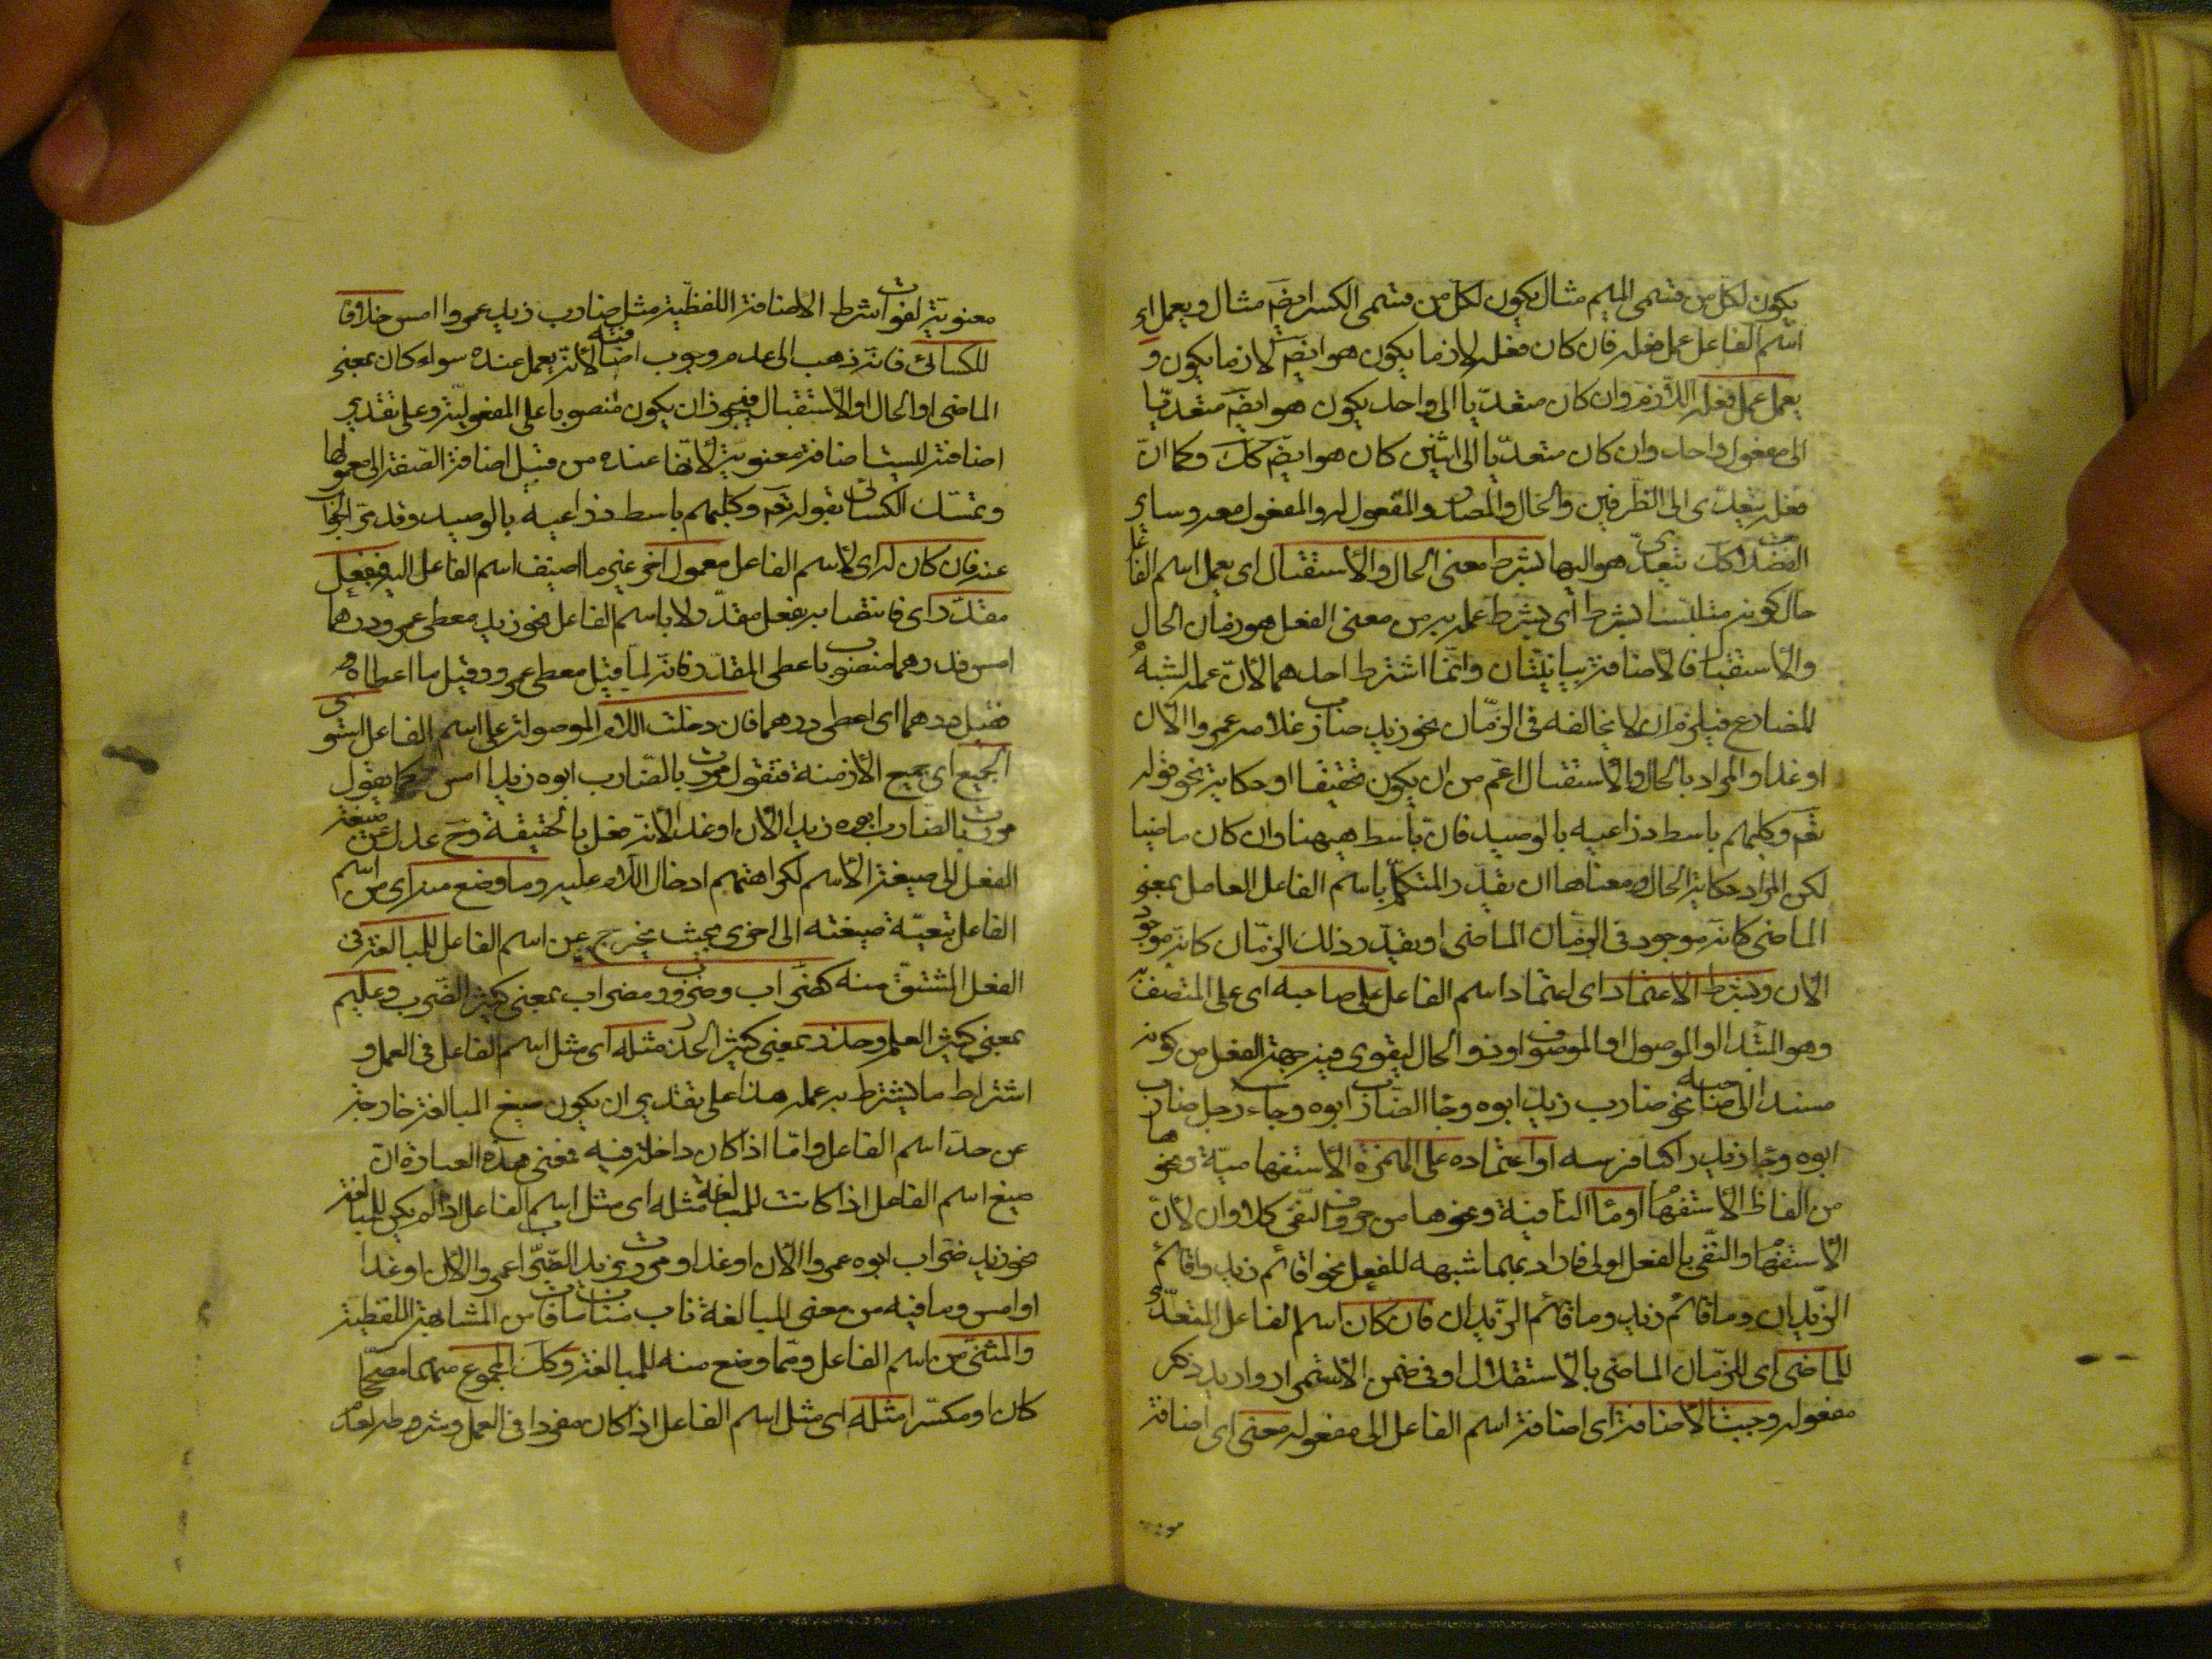 يكون لكل من قسمي الميم مثال يكون لكل من قسمي الكسر ايضم مثال ويعمل اي
اسم الفاعل عمل فعله فان كان فعله لازما يكون هو ايضم لازما يكون و
يعمل عمل فعله اللازم وان كان متعديا الى واحد يكون هو ايضم متعديا
الى مفعول واحد وان كان متعديا الى اثنين كان هو ايضم كك وكما ان
فعله يتعدى الى الظرفين والحال والمصدر والمفعول له والمفعول معه وساير
الفضلات كك يتعدى هو اليها بشرط معنى الحال والاستقبال اى يعمل اسم الفاعل
حال كونه متلبسا بشرط اى بشرط عمله به من معنى الفعل هو زمان الحال
والاستقبال فالاضافة بيانيتان وانما اشترط احدهما لان عمله لشبه
المضارع فيلزم ان لا يخالفه فى الزمان نحو زيد ضارب غلامه عمروا الان
او غدا والمراد بالحال والاستقبال اعم من ان يكون تحقيقا او حكاية نحو قوله
تعم وكلبهم باسط ذراعيه بالوصيد فان باسط هيهنا وان كان ماضيا
لكن المراد حكاية الحال ومعناها ان يقدر المتكلم باسم الفاعل العامل بمعنى
الماضى كانه موجود فى الزمان الماضى او يقدر ذلك الزمان كانه موجود
الان وبشرط الاعتماد اى اعتماد اسم الفاعل على صاحبه اى على المتصف به
وهو المبتدا او الموصول او الموصوف او ذو الحال ليقوى فيه جهة الفعل من كونه
مسندا الى صاحبه نحو ضارب زيد ابوه وجا الضارب ابوه وجاء رجل ضارب
ابوه وجا زيد راكبا فرسه او اعتماده على الهمزة الاستفهامية ونحوها
من الفاظ الاستفهام او ما النافية ونحوها من حروف النفى كلا وان لان
الاستفهام والنفى بالفعل اولى فازداد بهما شبهه للفعل نحو اقائم زيد واقائم
الزيدان وما قائم زيد وما قائم الزيدان فان كان اسم الفاعل المتعدى
للماضى اى للزمان الماضى بالاستقلال او فى ضمن الاستمرار واريد ذكر
مفعوله وجبت الاضافة اى اضافة اسم الفاعل الى مفعوله معنى اى اضافة
معنوية لفوات شرط الاضافة اللفظية مثل ضارب زيد عمروا امس خلافا
للكسائى فانه ذهب الى عدم وجوب اضافته لانه يعمل عنده سواء كان بمعنى
الماضى او الحال او الاستقبال فيجوز ان يكون منصوبا على المفعولية وعلى تقدير
اضافته ليست اضافة معنوية لانها عنده من قبيل اضافة الصفة الى معمولها
وتمسك الكسائى بقوله تعم وكلبهم باسط ذراعيه بالوصيد وقد مر الجواب
عنه فان كان له اى لاسم الفاعل معمول اخر غير ما اضيف اسم الفاعل اليه فبفعل
مقدر اى فانتصابه بفعل مقدر لا باسم الفاعل نحو زيد معطى عمرو درهما
امس فدرهما منصوب باعطى المقدر فانه لما قيل معطى عمرو وقيل ما اعطاه
فقيل درهما اى اعطى درهما فان دخلت اللام الموصولة على اسم الفاعل استوى
الجميع اى جميع الازمنة فتقول مررت بالضارب ابوه زيدا امس كما يقول
مررت بالضارب ابوه زيدا الان او غدا لانه فعل بالحقيقة وح عدل عن صيغة
الفعل الى صيغة الاسم لكراهتهم ادخال اللام عليه وما وضع منه اى من اسم
الفاعل بتعية صيغته الى اخرى بحيث يخرج عن اسم الفاعل للمبالغة فى
الفعل المشتق منه كضراب وضروب ومضراب بمعنى كثير الضرب وعليم
بمعنى كثير العلم وحذر بمعنى كثير الحذر مثله اى مثل اسم الفاعل فى العمل و
اشتراط ما يشترط به عمله هذا على تقدير ان يكون صيغ المبالغة خارجة
عن حد اسم الفاعل واما اذا كان داخلة فيه فمعنى هذه العبارة ان
صيغ اسم الفاعل اذا كانت للمبالغة مثله اى مثل اسم الفاعل اذا لم يكن للمبالغة
نحو زيد ضراب ابوه عمروا الان او غدا او مررت بزيد الضراب عمروا الان او غدا
او امس وما فيه من معنى المبالغة ناب مناب ما فات من المشابهة اللفظية
والمثنى من اسم الفاعل ومما وضع منه للمبالغة وكك المجموع منهما مصححا
كان او مكسرا مثله اى مثل اسم الفاعل اذا كان مفردا فى العمل وشروطه